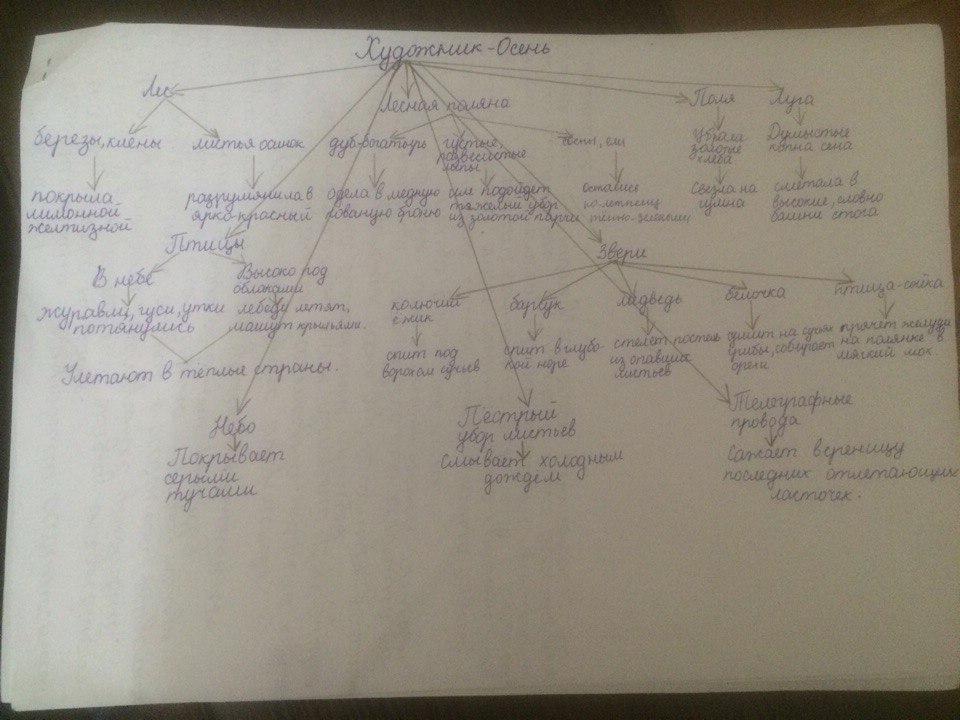 Художник-Осень
Лес
Лесная поляна
Поля
Луга
березы, клены
листья осинок
дуб-богатырь
густые,
развесистые
липы
сосны, ели
Убрала
золотые
хлеба
Душистые
копна сена
покрыла
лимонной
желтизной
разрумянила в
ярко-красный
одела в медную
кованую броню
им подойдет
тяжелый убор
из золотой парчи
остались
по-летнему
тёмно-зелеными
Свезла на
гумна
сметала в
высокие, словно
башни стога
Птицы
Звери
В небе
Высоко под
облаками
журавли, гуси, утки
потянулись
лебеди летят,
машут крыльями.
колючий
ёжик
барсук
медведь
белочка
птица-сойка
Улетают в тёплые страны.
спит под
ворохом сучьев
спит в глубо-
кой норе
стелет постель
из опавших
листьев
сушит на сучьях
грибы, собирает
орехи
прячет желуди
на полянке в
мягкий мох
Небо
Пёстрый
убор листьев
Телеграфные
провода
Покрывает
серыми
тучами
Смывает холодным
дождем
Сажает вереницу
последних отлетающих
ласточек.